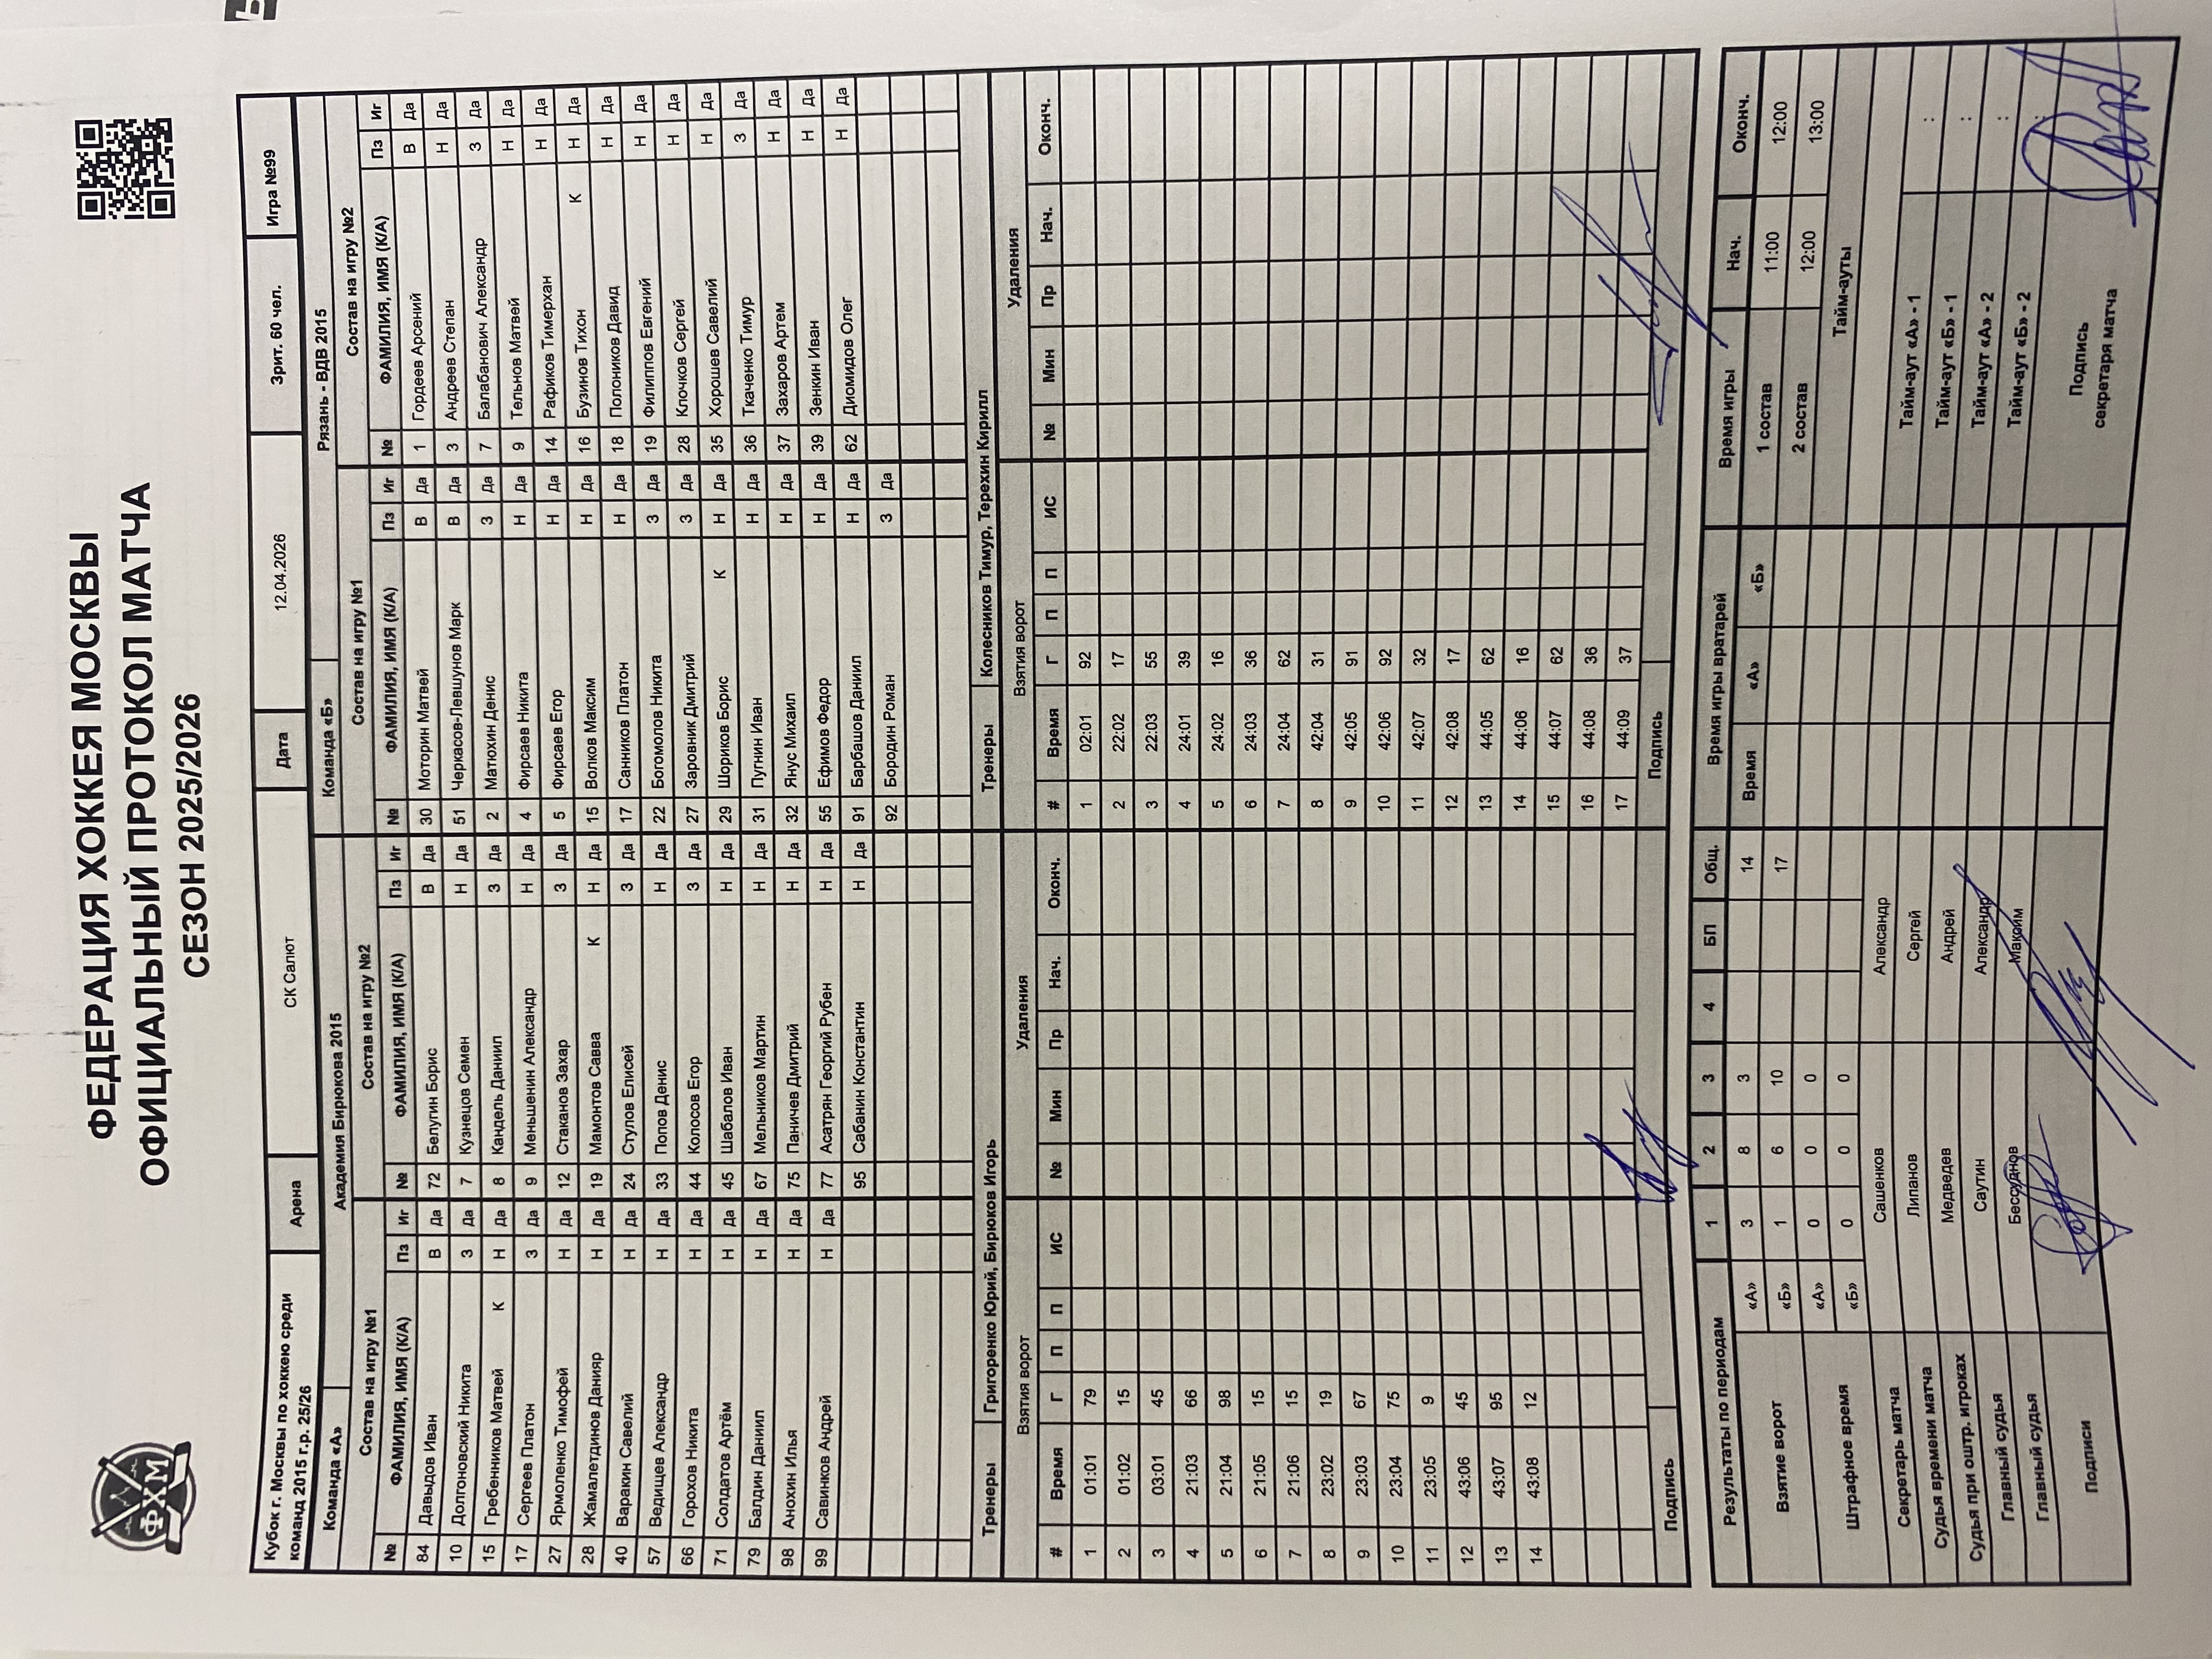 ФХМ
ФЕДЕРАЦИЯ ХОККЕЯ МОСКВЫ
ОФИЦИАЛЬНЫЙ ПРОТОКОЛ МАТЧА
СЕЗОН 2025/2026
Кубок г. Москвы по хоккею среди команд 2015 г.р. 25/26 Арена СК Салют Дата 12.04.2026 Зрит. 60 чел. Игра №99
Команда «А» Академия Бирюкова 2015 Команда «Б» Рязань - ВДВ 2015
Состав на игру №1 Состав на игру №2 Состав на игру №1 Состав на игру №2
№ ФАМИЛИЯ, ИМЯ (К/А) Пз Иг № ФАМИЛИЯ, ИМЯ (К/А) Пз Иг № ФАМИЛИЯ, ИМЯ (К/А) Пз Иг № ФАМИЛИЯ, ИМЯ (К/А) Пз Иг
84 Давыдов Иван В Да 72 Белугин Борис В Да 30 Моторин Матвей В Да 1 Гордеев Арсений В Да
10 Долгоновский Никита З Да 7 Кузнецов Семен Н Да 51 Черкасов-Левшунов Марк В Да 3 Андреев Степан Н Да
15 Гребенников Матвей К Н Да 8 Кандель Даниил З Да 2 Матюхин Денис З Да 7 Балабанович Александр З Да
17 Сергеев Платон З Да 9 Меньшенин Александр Н Да 4 Фирсаев Никита Н Да 9 Тельнов Матвей Н Да
27 Ярмоленко Тимофей Н Да 12 Стаканов Захар З Да 5 Фирсаев Егор Н Да 14 Рафиков Тимерхан Н Да
28 Жамалетдинов Данияр Н Да 19 Мамонтов Савва К Н Да 15 Волков Максим Н Да 16 Бузинов Тихон К Н Да
40 Варакин Савелий Н Да 24 Стулов Елисей З Да 17 Санников Платон Н Да 18 Полоников Давид Н Да
57 Ведищев Александр Н Да 33 Попов Денис Н Да 22 Богомолов Никита З Да 19 Филиппов Евгений Н Да
66 Горохов Никита Н Да 44 Колосов Егор З Да 27 Заровник Дмитрий З Да 28 Клочков Сергей Н Да
71 Солдатов Артём Н Да 45 Шабалов Иван Н Да 29 Шориков Борис К Н Да 35 Хорошев Савелий Н Да
79 Балдин Даниил Н Да 67 Мельников Мартин Н Да 31 Пугнин Иван Н Да 36 Ткаченко Тимур З Да
98 Анохин Илья Н Да 75 Паничев Дмитрий Н Да 32 Янус Михаил Н Да 37 Захаров Артем Н Да
99 Савинков Андрей Н Да 77 Асатрян Георгий Рубен Н Да 55 Ефимов Федор Н Да 39 Зенкин Иван Н Да
95 Сабанин Константин Н Да 91 Барбашов Даниил Н Да 62 Диомидов Олег Н Да
92 Бородин Роман З Да
Тренеры Григоренко Юрий, Бирюков Игорь Тренеры Колесников Тимур, Терехин Кирилл
Взятия ворот Удаления Взятия ворот Удаления
# Время Г П П ИС № Мин Пр Нач. Оконч. # Время Г П П ИС № Мин Пр Нач. Оконч.
1 01:01 79 1 02:01 92
2 01:02 15 2 22:02 17
3 03:01 45 3 22:03 55
4 21:03 66 4 24:01 39
5 21:04 98 5 24:02 16
6 21:05 15 6 24:03 36
7 21:06 15 7 24:04 62
8 23:02 19 8 42:04 31
9 23:03 67 9 42:05 91
10 23:04 75 10 42:06 92
11 23:05 9 11 42:07 32
12 43:06 45 12 42:08 17
13 43:07 95 13 44:05 62
14 43:08 12 14 44:06 16
15 44:07 62
16 44:08 36
17 44:09 37
Подпись Подпись
Результаты по периодам 1 2 3 4 БП Общ. Время игры вратарей Время игры Нач. Оконч.
Взятие ворот «А» 3 8 3 14 Время «А» «Б» 1 состав 11:00 12:00
«Б» 1 6 10 17 2 состав 12:00 13:00
Штрафное время «А» 0 0 0 Тайм-ауты
«Б» 0 0 0
Секретарь матча Сашенков Александр Тайм-аут «А» - 1 :
Судья времени матча Липанов Сергей Тайм-аут «Б» - 1 :
Судья при оштр. игроках Медведев Андрей Тайм-аут «А» - 2 :
Главный судья Саутин Александр Тайм-аут «Б» - 2 :
Главный судья Бессуднов Максим
Подписи Подпись секретаря матча